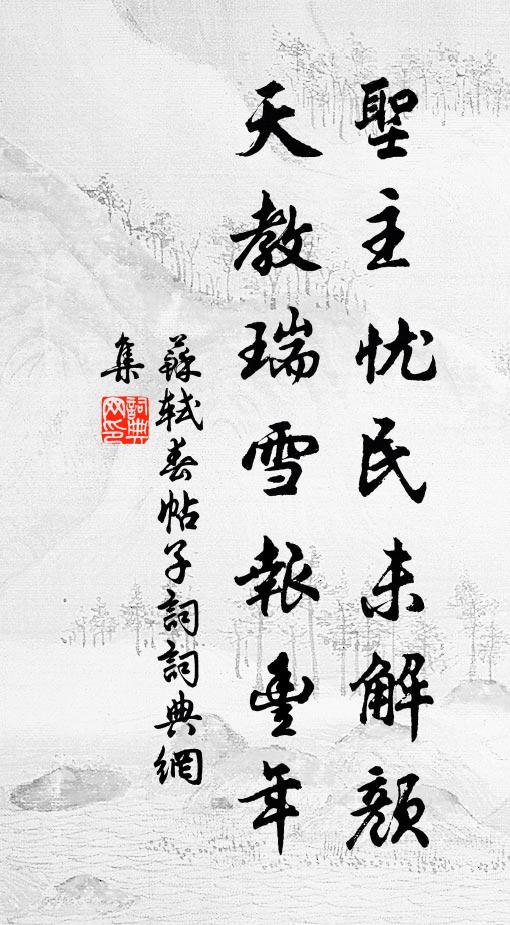 聖主忧民未解顏
天教瑞雪報豐年
蘇軾春帖子詞詞典網
集
詞典
网印